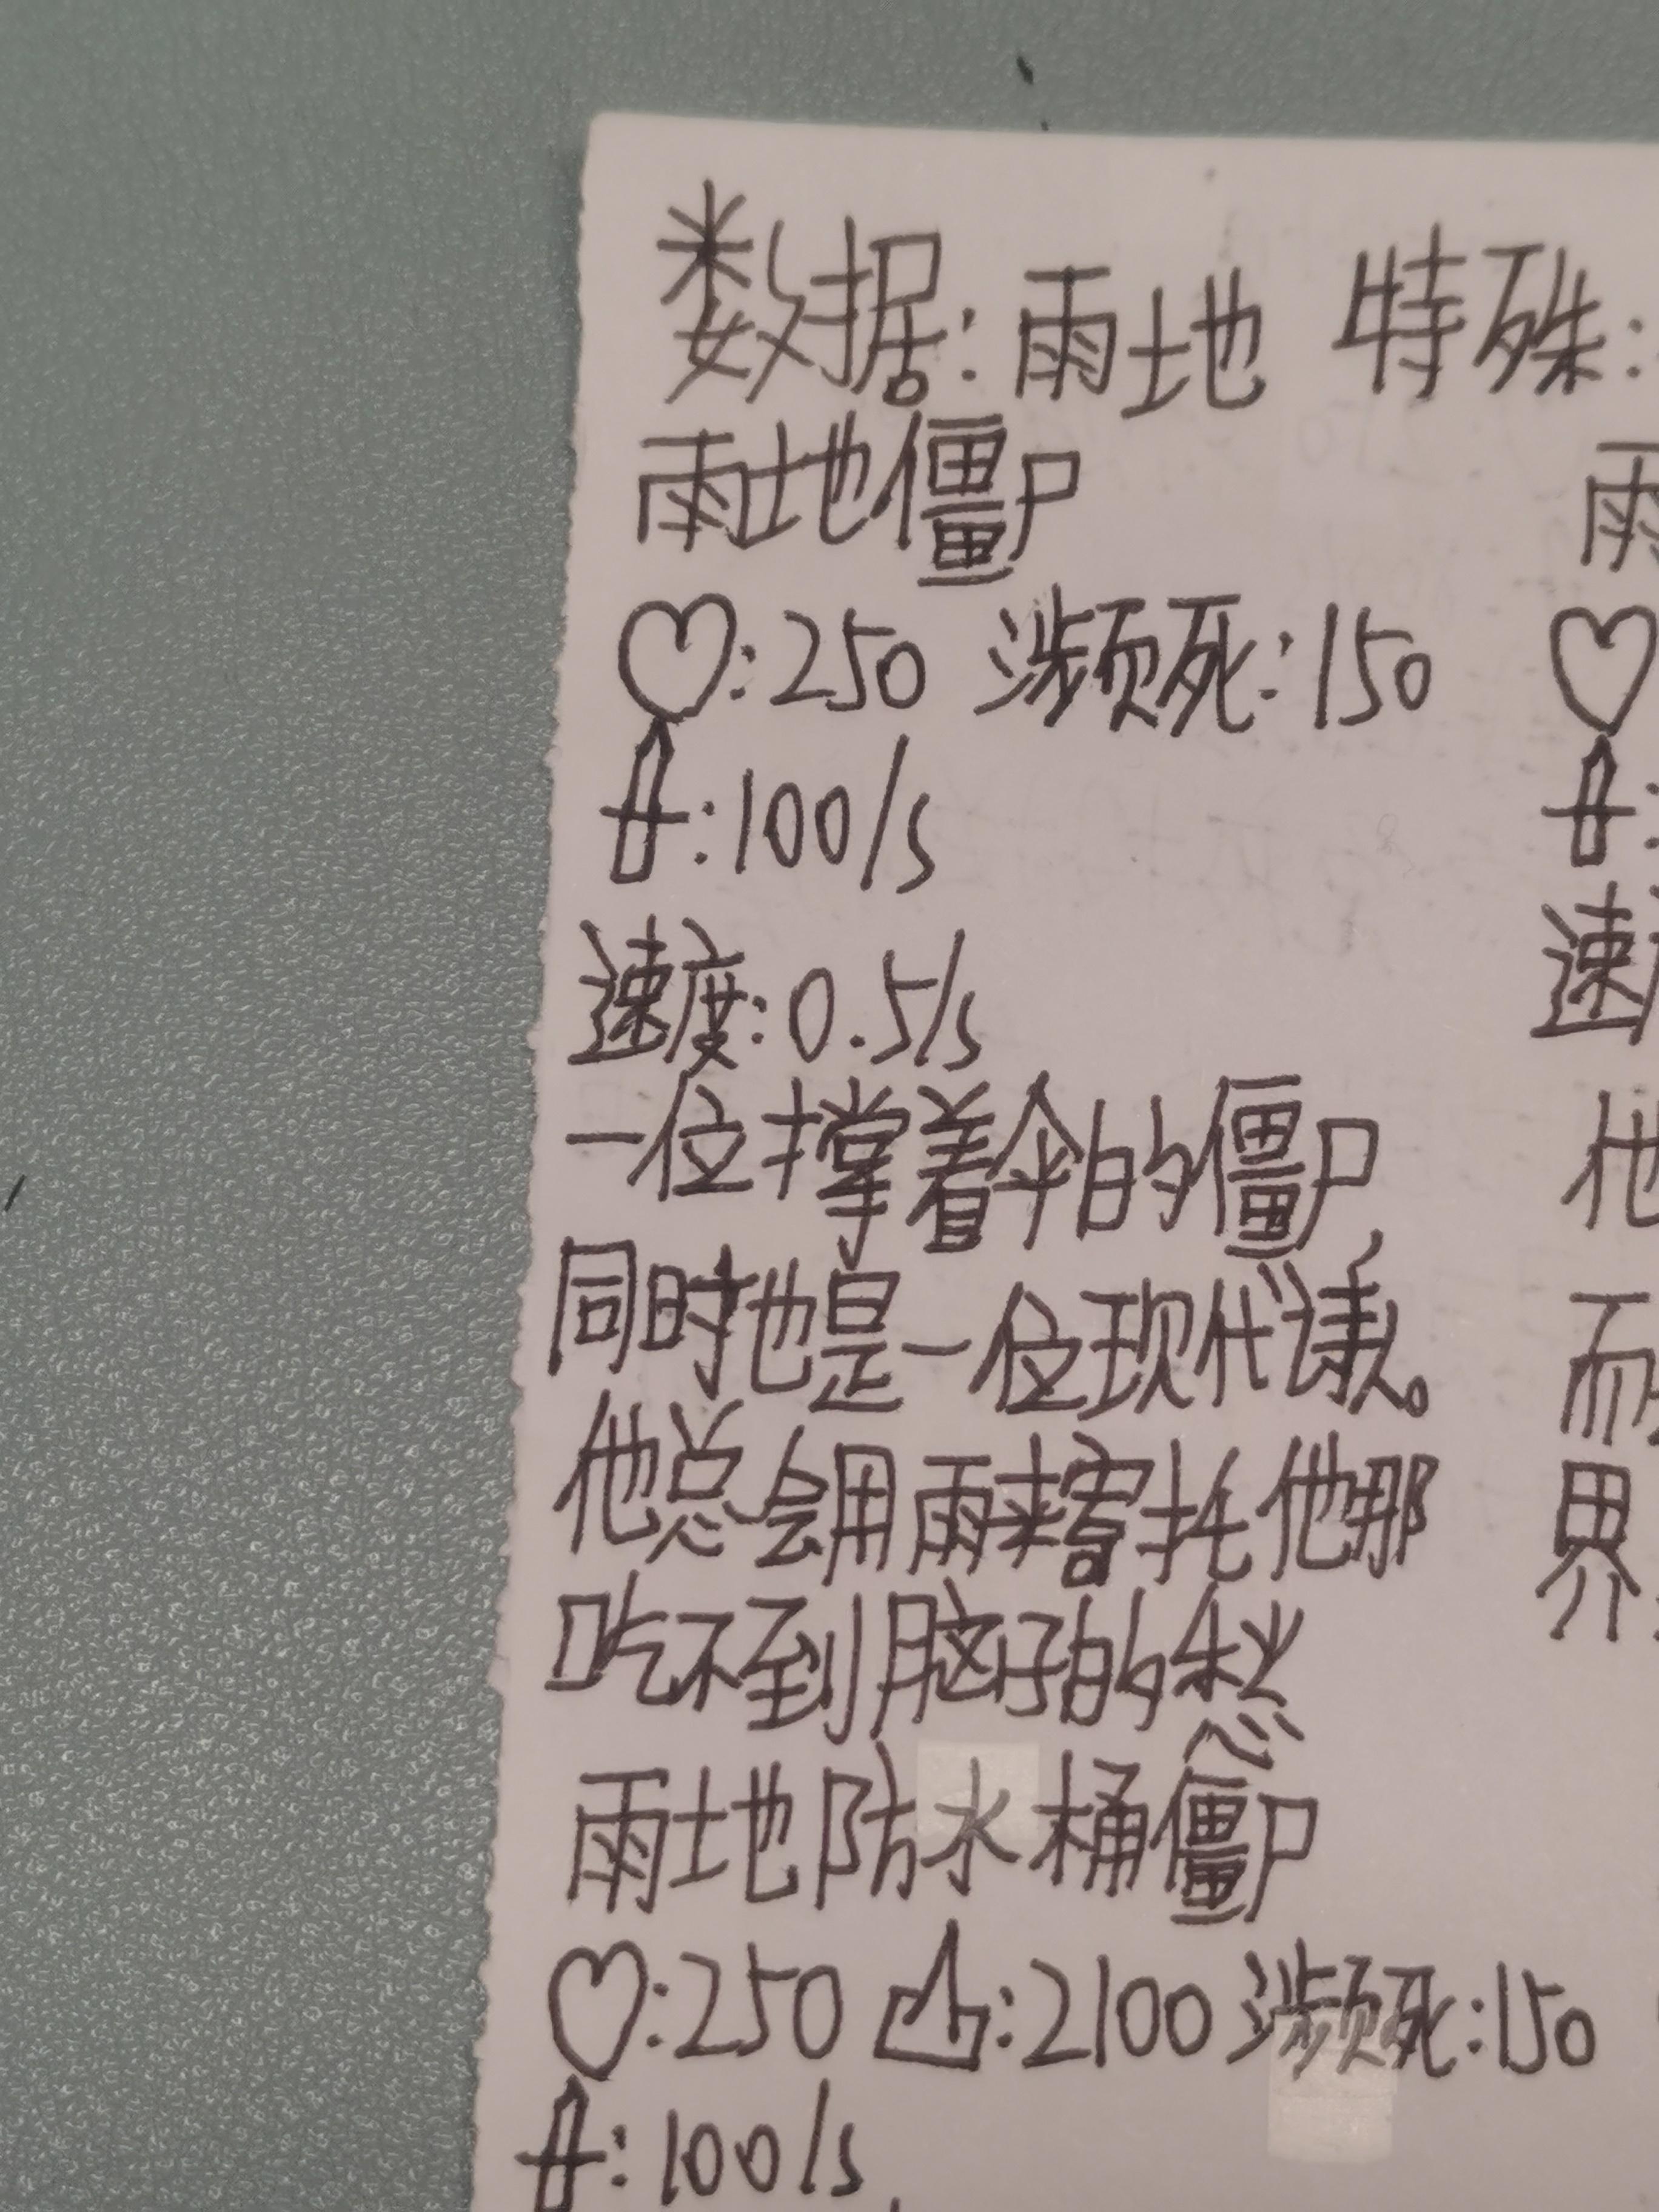 数据:雨地 特殊:
雨地僵尸 雨
♡:250 濒死:150 ♡
:100/s :
速度:0.5/s 速
一位撑着伞的僵尸, 他
同时他是一位现代诗人。 而
他总会用雨来寄托他那 界
吃不到脑子的愁
雨地防水桶僵尸
♡:250 :2100 濒死:150
:100/s